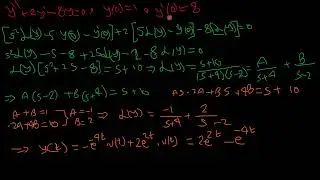 y'' + 2y' - 8y = 0, y(0) = 1, y'(0) = 8
[s²L(y) - s y(0) - y'(0)] + 2[sL(y) - y(0)] - 8[L(y)] = 0
s²L(y) - s - 8 + 2sL(y) - 2 - 8L(y) = 0
L(y)[s² + 2s - 8] = s + 10 → L(y) = s+10 / (s+4)(s-2) = A / s+4 + B / s-2
⇒ A(s-2) + B(s+4) = s + 10 As - 2A + Bs + 4B = s + 10
A + B = 1 A = -1
-2A + 4B = 10 B = 2 ⇒ L(y) = -1 / s+4 + 2 / s-2
⇒ y(t) = -e^-4t . u(t) + 2e^2t . u(t) = 2e^2t - e^-4t